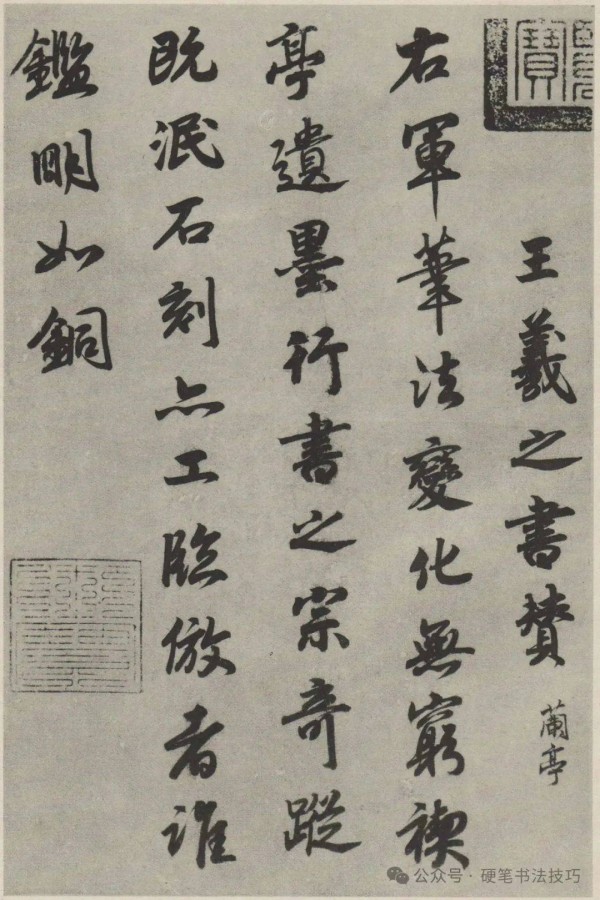 王羲之書贊 蘭亭
右軍筆法變化無窮禊
亭遺墨行書之宗奇蹤
既泯石刻亦工臨倣者誰
鑑明如銅
寶
公众号 · 硬笔书法技巧